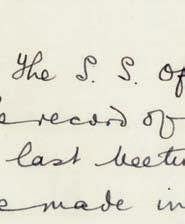 The S. S. of
record of
last Meetin
made in